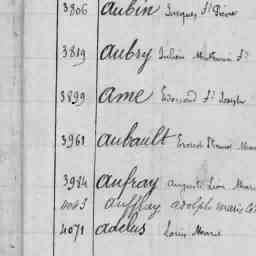 3806 Aubin Jacques St Pierre
3819 Aubry Julien Mathurin St
3899 Ame Edouard St Joseph
3961 Aubault Ernest
3984 Aufray Auguste Léon Marie
4043 Auffray adolphe marie
4071 adelus Louis Marie